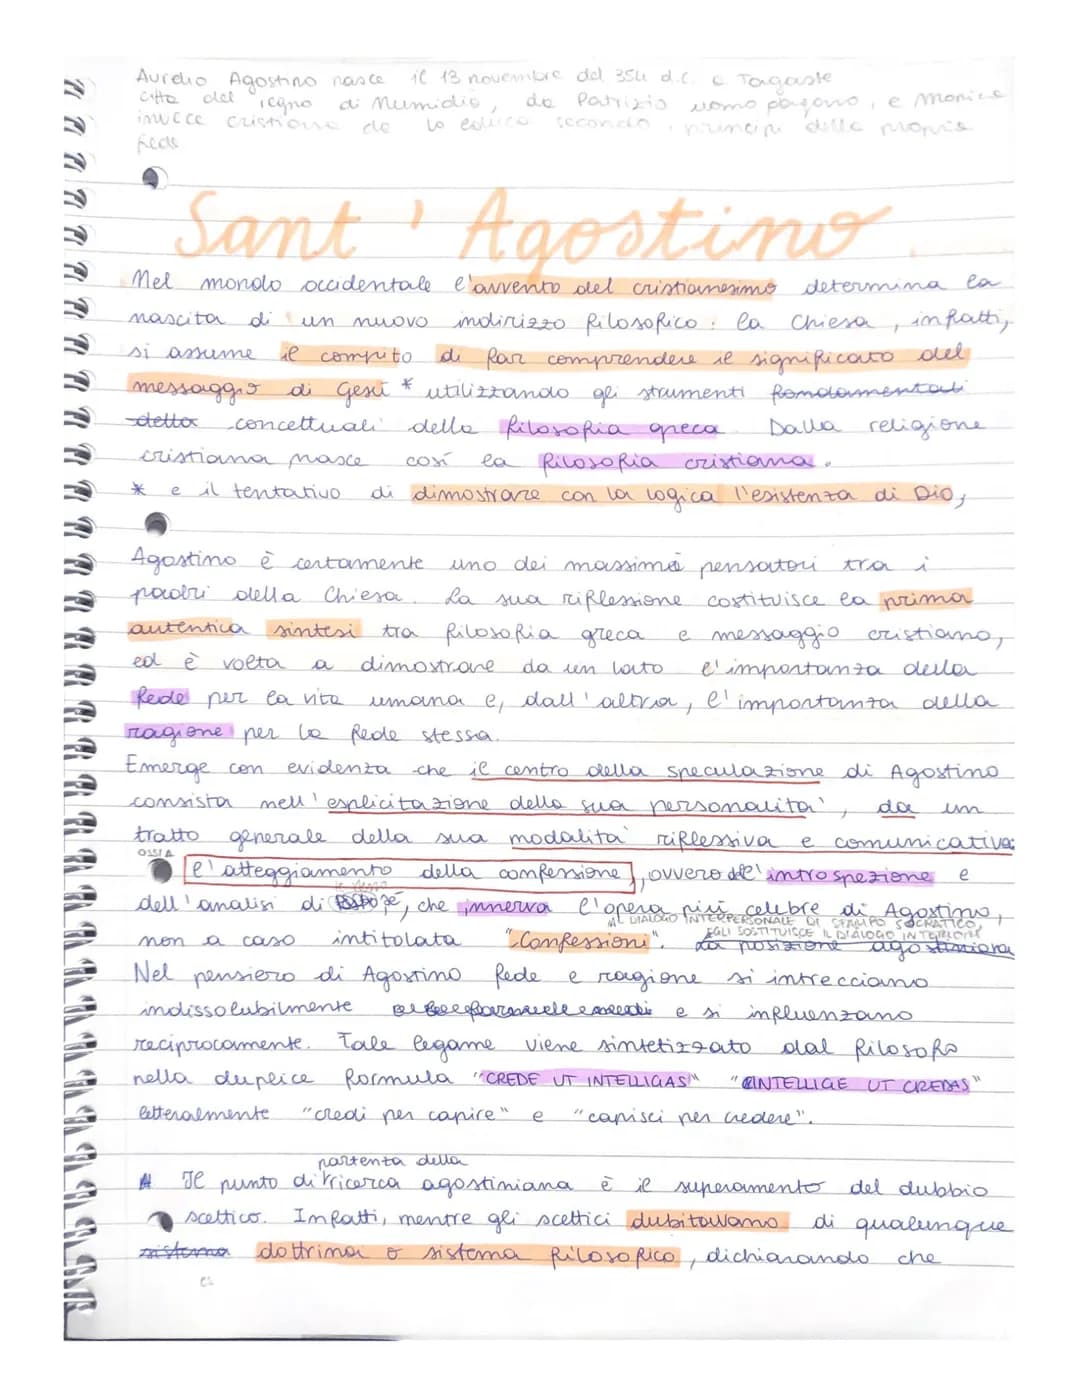 Aurelio Agostino nasce il 13 novembre del 354 d.C. a Tagaste
città del regno di Numidia, da Patrizio uomo pagano, e Monica
invece cristiana che lo educa secondo i principi della propria
fede
Sant' Agostino
Nel mondo occidentale l'avvento del cristianesimo determina la
nascita di un nuovo indirizzo filosofico: la Chiesa, infatti,
si assume il compito di far comprendere il significato del
messaggio di Gesù * utilizzando gli strumenti fondamentali
della concettuali della filosofia greca. Dalla religione
cristiana nasce così la filosofia cristiana.
* e il tentativo di dimostrare con la logica l'esistenza di Dio,
Agostino è certamente uno dei massimi pensatori tra i
padri della Chiesa. La sua riflessione costituisce la prima
autentica sintesi tra filosofia greca e messaggio cristiano,
ed è volta a dimostrare da un lato l'importanza della
fede per la vita umana e, dall'altra, l'importanza della
ragione per la fede stessa.
Emerge con evidenza che il centro della speculazione di Agostino
consista nell'esplicitazione della sua personalita', da un
tratto generale della sua modalita' riflessiva e comunicativa:
OSSIA
l'atteggiamento della confessione, ovvero dell'introspezione e
dell'analisi di sé, che innerva l'opera più celebre di Agostino,
AL DIALOGO INTERPERSONALE DI STAMPO SOCRATICO,
EGLI SOSTITUISCE IL DIALOGO INTERIORE
non a caso intitolata "Confessioni". La posizione agostiniana
Nel pensiero di Agostino fede e ragione si intrecciano
indissolubilmente e si influenzano
reciprocamente. Tale legame viene sintetizzato dal filosofo
nella duplice formula "CREDE UT INTELLIGAS" "INTELLIGE UT CREDAS"
letteralmente "credi per capire" e "capisci per credere".
partenza della
Il punto di ricerca agostiniana è il superamento del dubbio
scettico. Infatti, mentre gli scettici dubitavano di qualunque
sistema dottrina o sistema filosofico, dichiarando che